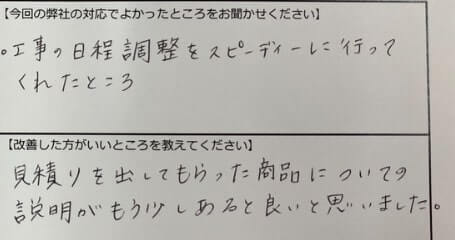 【今回の弊社の対応でよかったところをお聞かせください】
。工事の日程調整をスピーディーに行って
くれたところ
【改善した方がいいところを教えてください】
見積りを出してもらった商品についての
説明がもう少しあると良いと思いました。